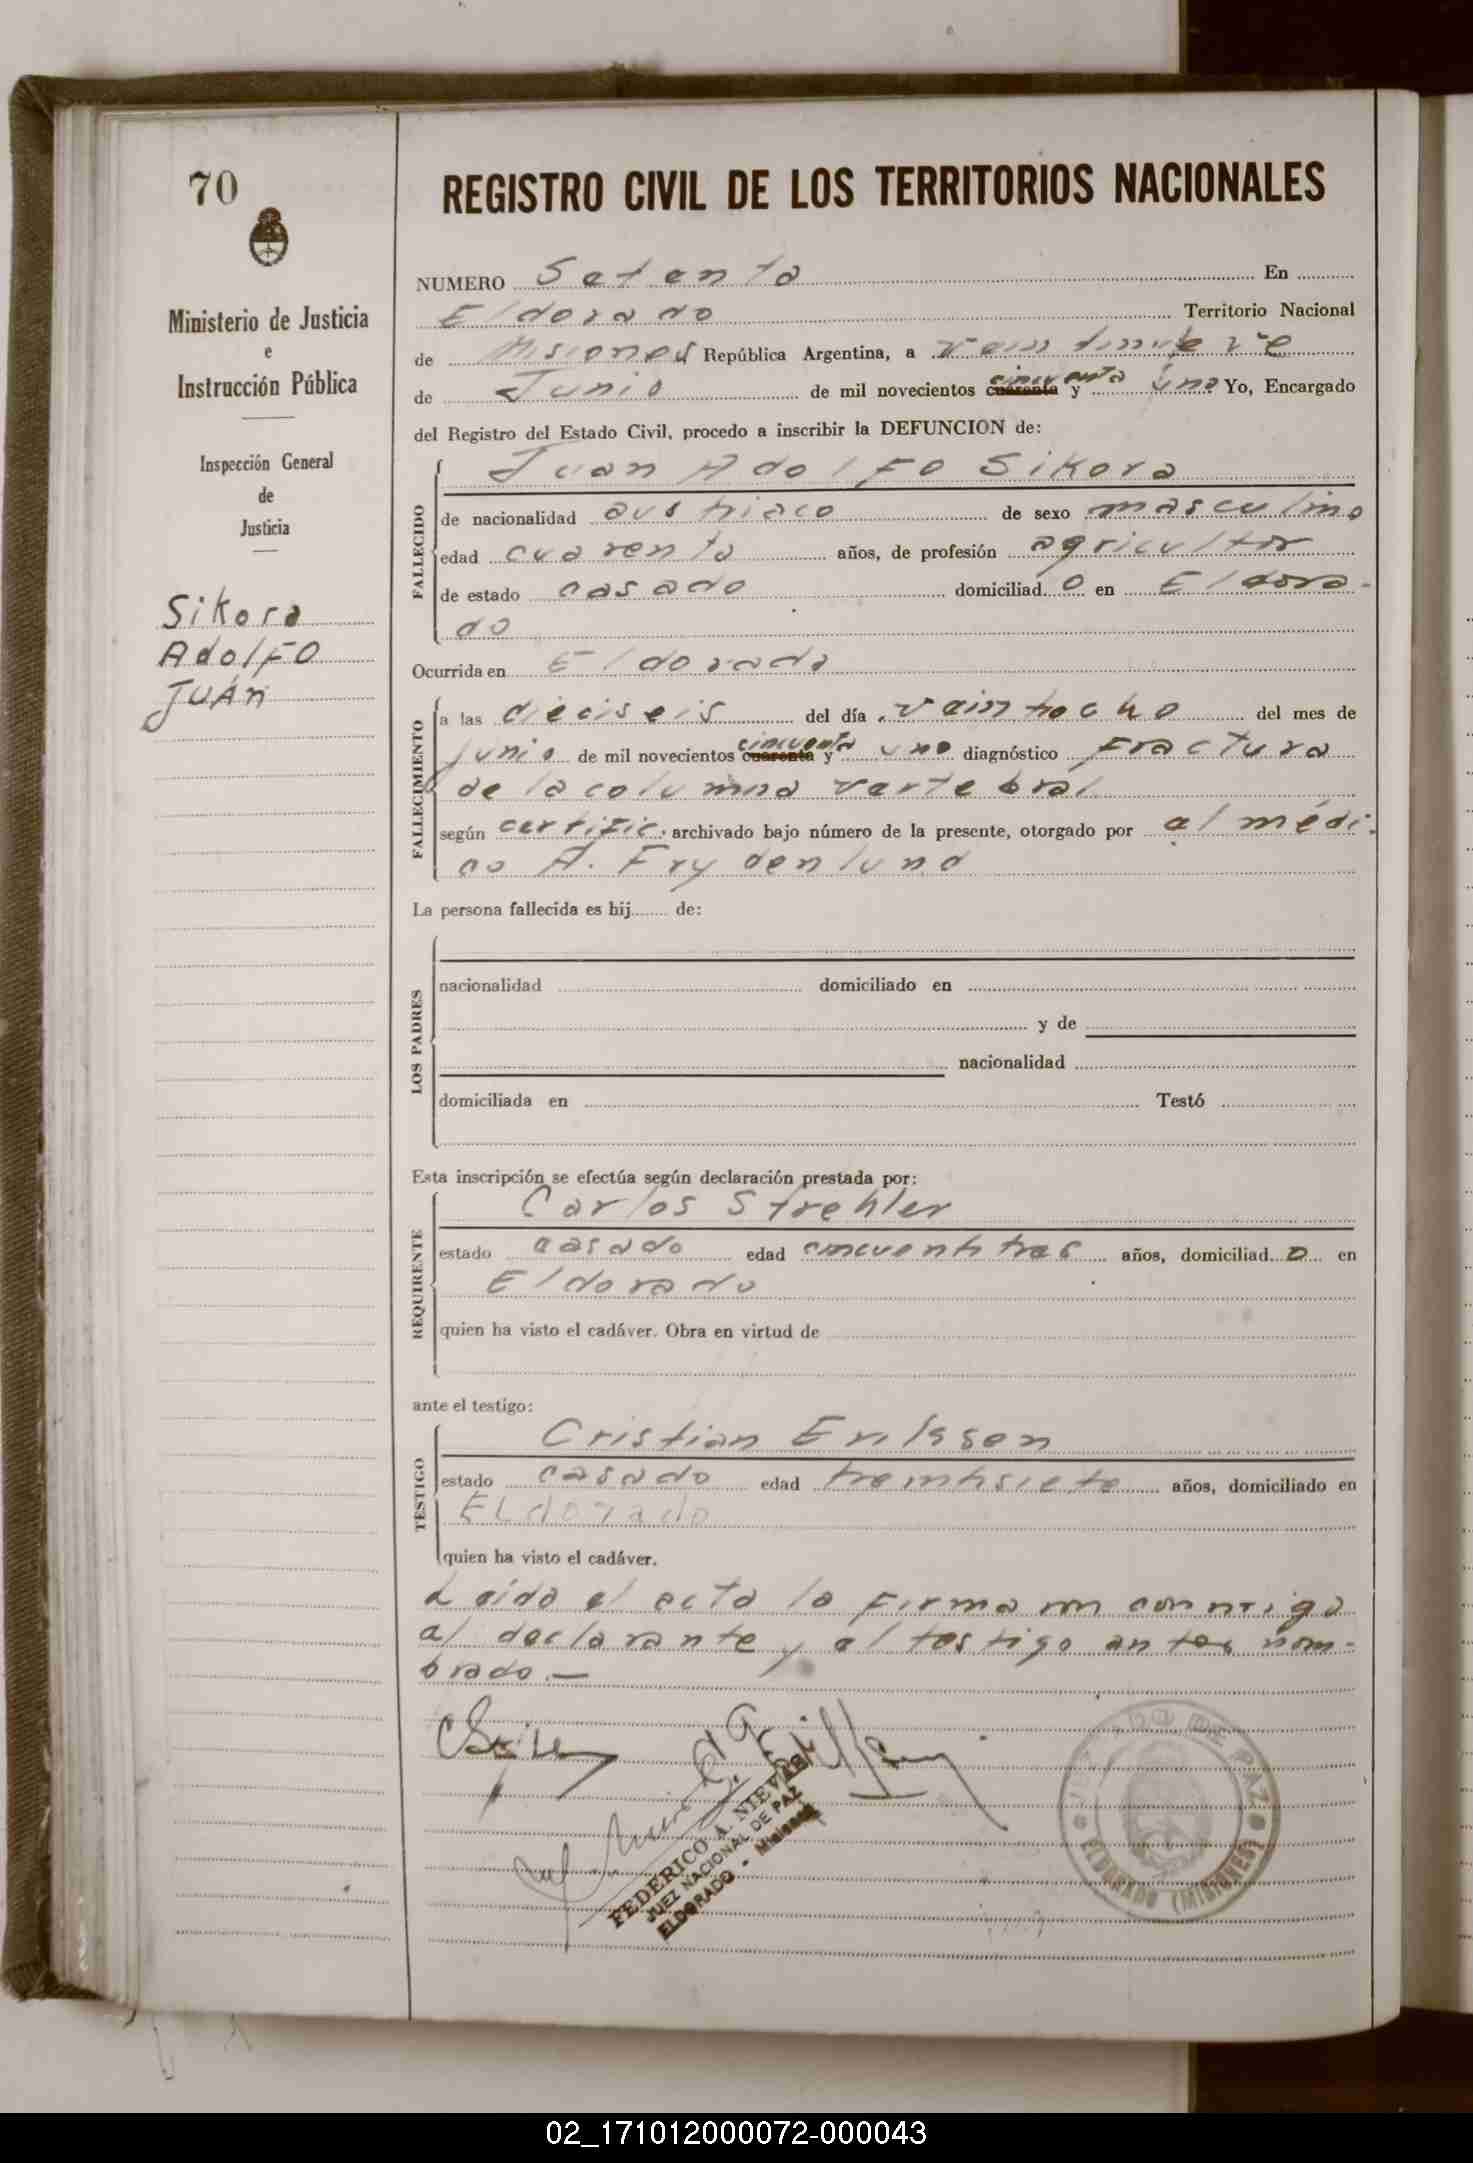 70
Ministerio de Justicia
e
Instrucción Pública
Inspección General
de
Justicia
Sikora
Adolfo
Juán
REGISTRO CIVIL DE LOS TERRITORIOS NACIONALES
NUMERO Setenta En
Eldorado Territorio Nacional
de Misiones República Argentina, a veintinueve
de Junio de mil novecientos cuarenta cincuenta y uno Yo, Encargado
del Registro del Estado Civil, procedo a inscribir la DEFUNCION de:
FALLECIDO
Juan Adolfo Sikora
de nacionalidad austriaco de sexo masculino
edad cuarenta años, de profesión agricultor
de estado casado domiciliad o en Eldora-
do
Ocurrida en Eldorado
FALLECIMIENTO
a las dieciseis del día veintiocho del mes de
junio de mil novecientos cuarenta cincuenta y uno diagnóstico fractura
de la columna vertebral
según certific. archivado bajo número de la presente, otorgado por el médi-
co A. Frydenlund
La persona fallecida es hij de:
LOS PADRES
nacionalidad domiciliado en
y de
nacionalidad
domiciliada en Testó
Esta inscripción se efectúa según declaración prestada por:
REQUIRENTE
Carlos Strehler
estado casado edad cincuentitres años, domiciliad o en
Eldorado
quien ha visto el cadáver. Obra en virtud de
ante el testigo:
TESTIGO
Cristian Eriksen
estado casado edad treintisiete años, domiciliado en
Eldorado
quien ha visto el cadáver.
Leida el acta la firman conmigo
el declarante y el testigo antes nom-
brado.—
FEDERICO A. NIEVAS
JUEZ NACIONAL DE PAZ
ELDORADO - Misiones
JUZGADO DE PAZ
ELDORADO (MISIONES)
02_171012000072-000043